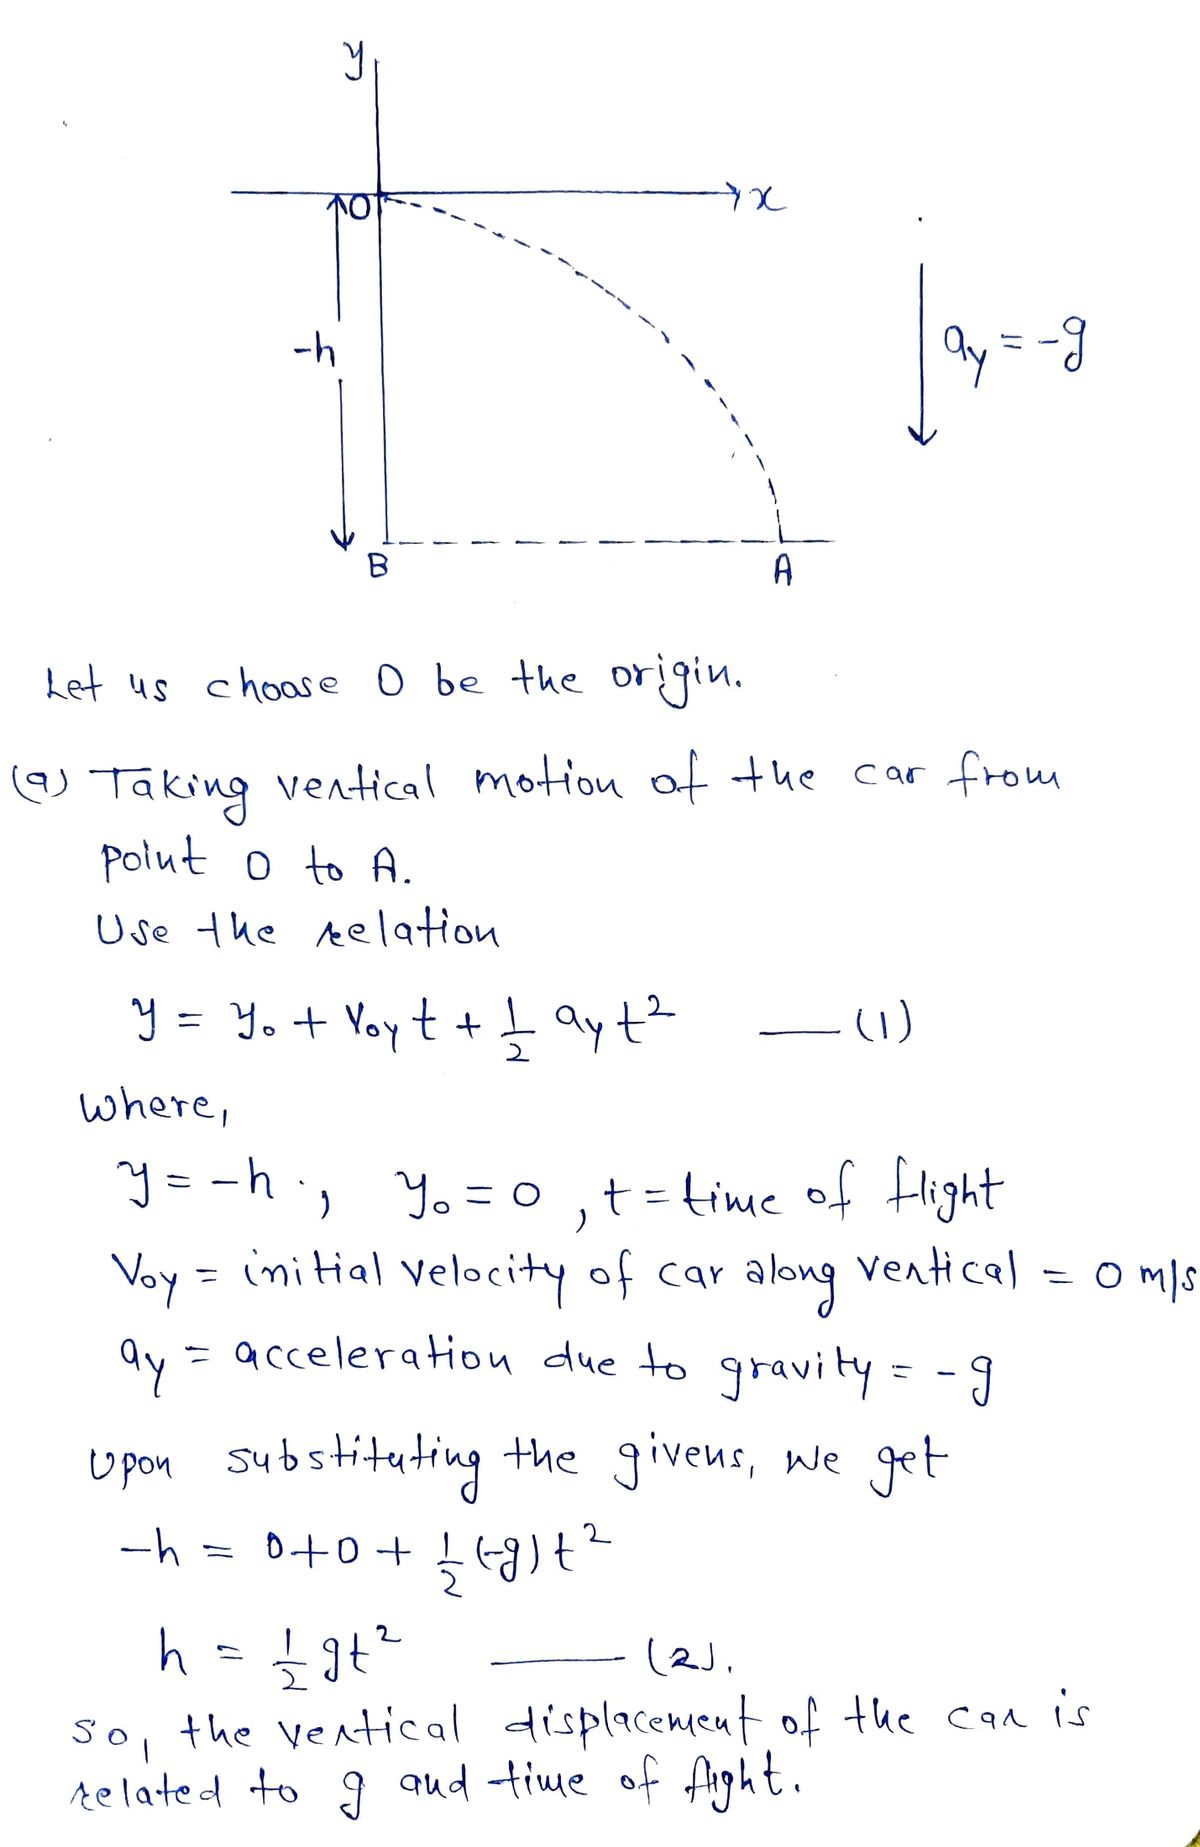 y
O
x
-h
ay = -g
B
A
Let us choose O be the origin.
(a) Taking vertical motion of the car from
point O to A.
Use the relation
y = y₀ + V₀y t + 1/2 ay t² — (1)
where,
y = -h ., y₀ = 0 , t = time of flight
V₀y = initial velocity of car along vertical = 0 m/s
ay = acceleration due to gravity = -g
Upon substituting the givens, we get
-h = 0+0 + 1/2 (-g) t²
h = 1/2 gt² — (2).
So, the vertical displacement of the car is
related to g and time of flight.